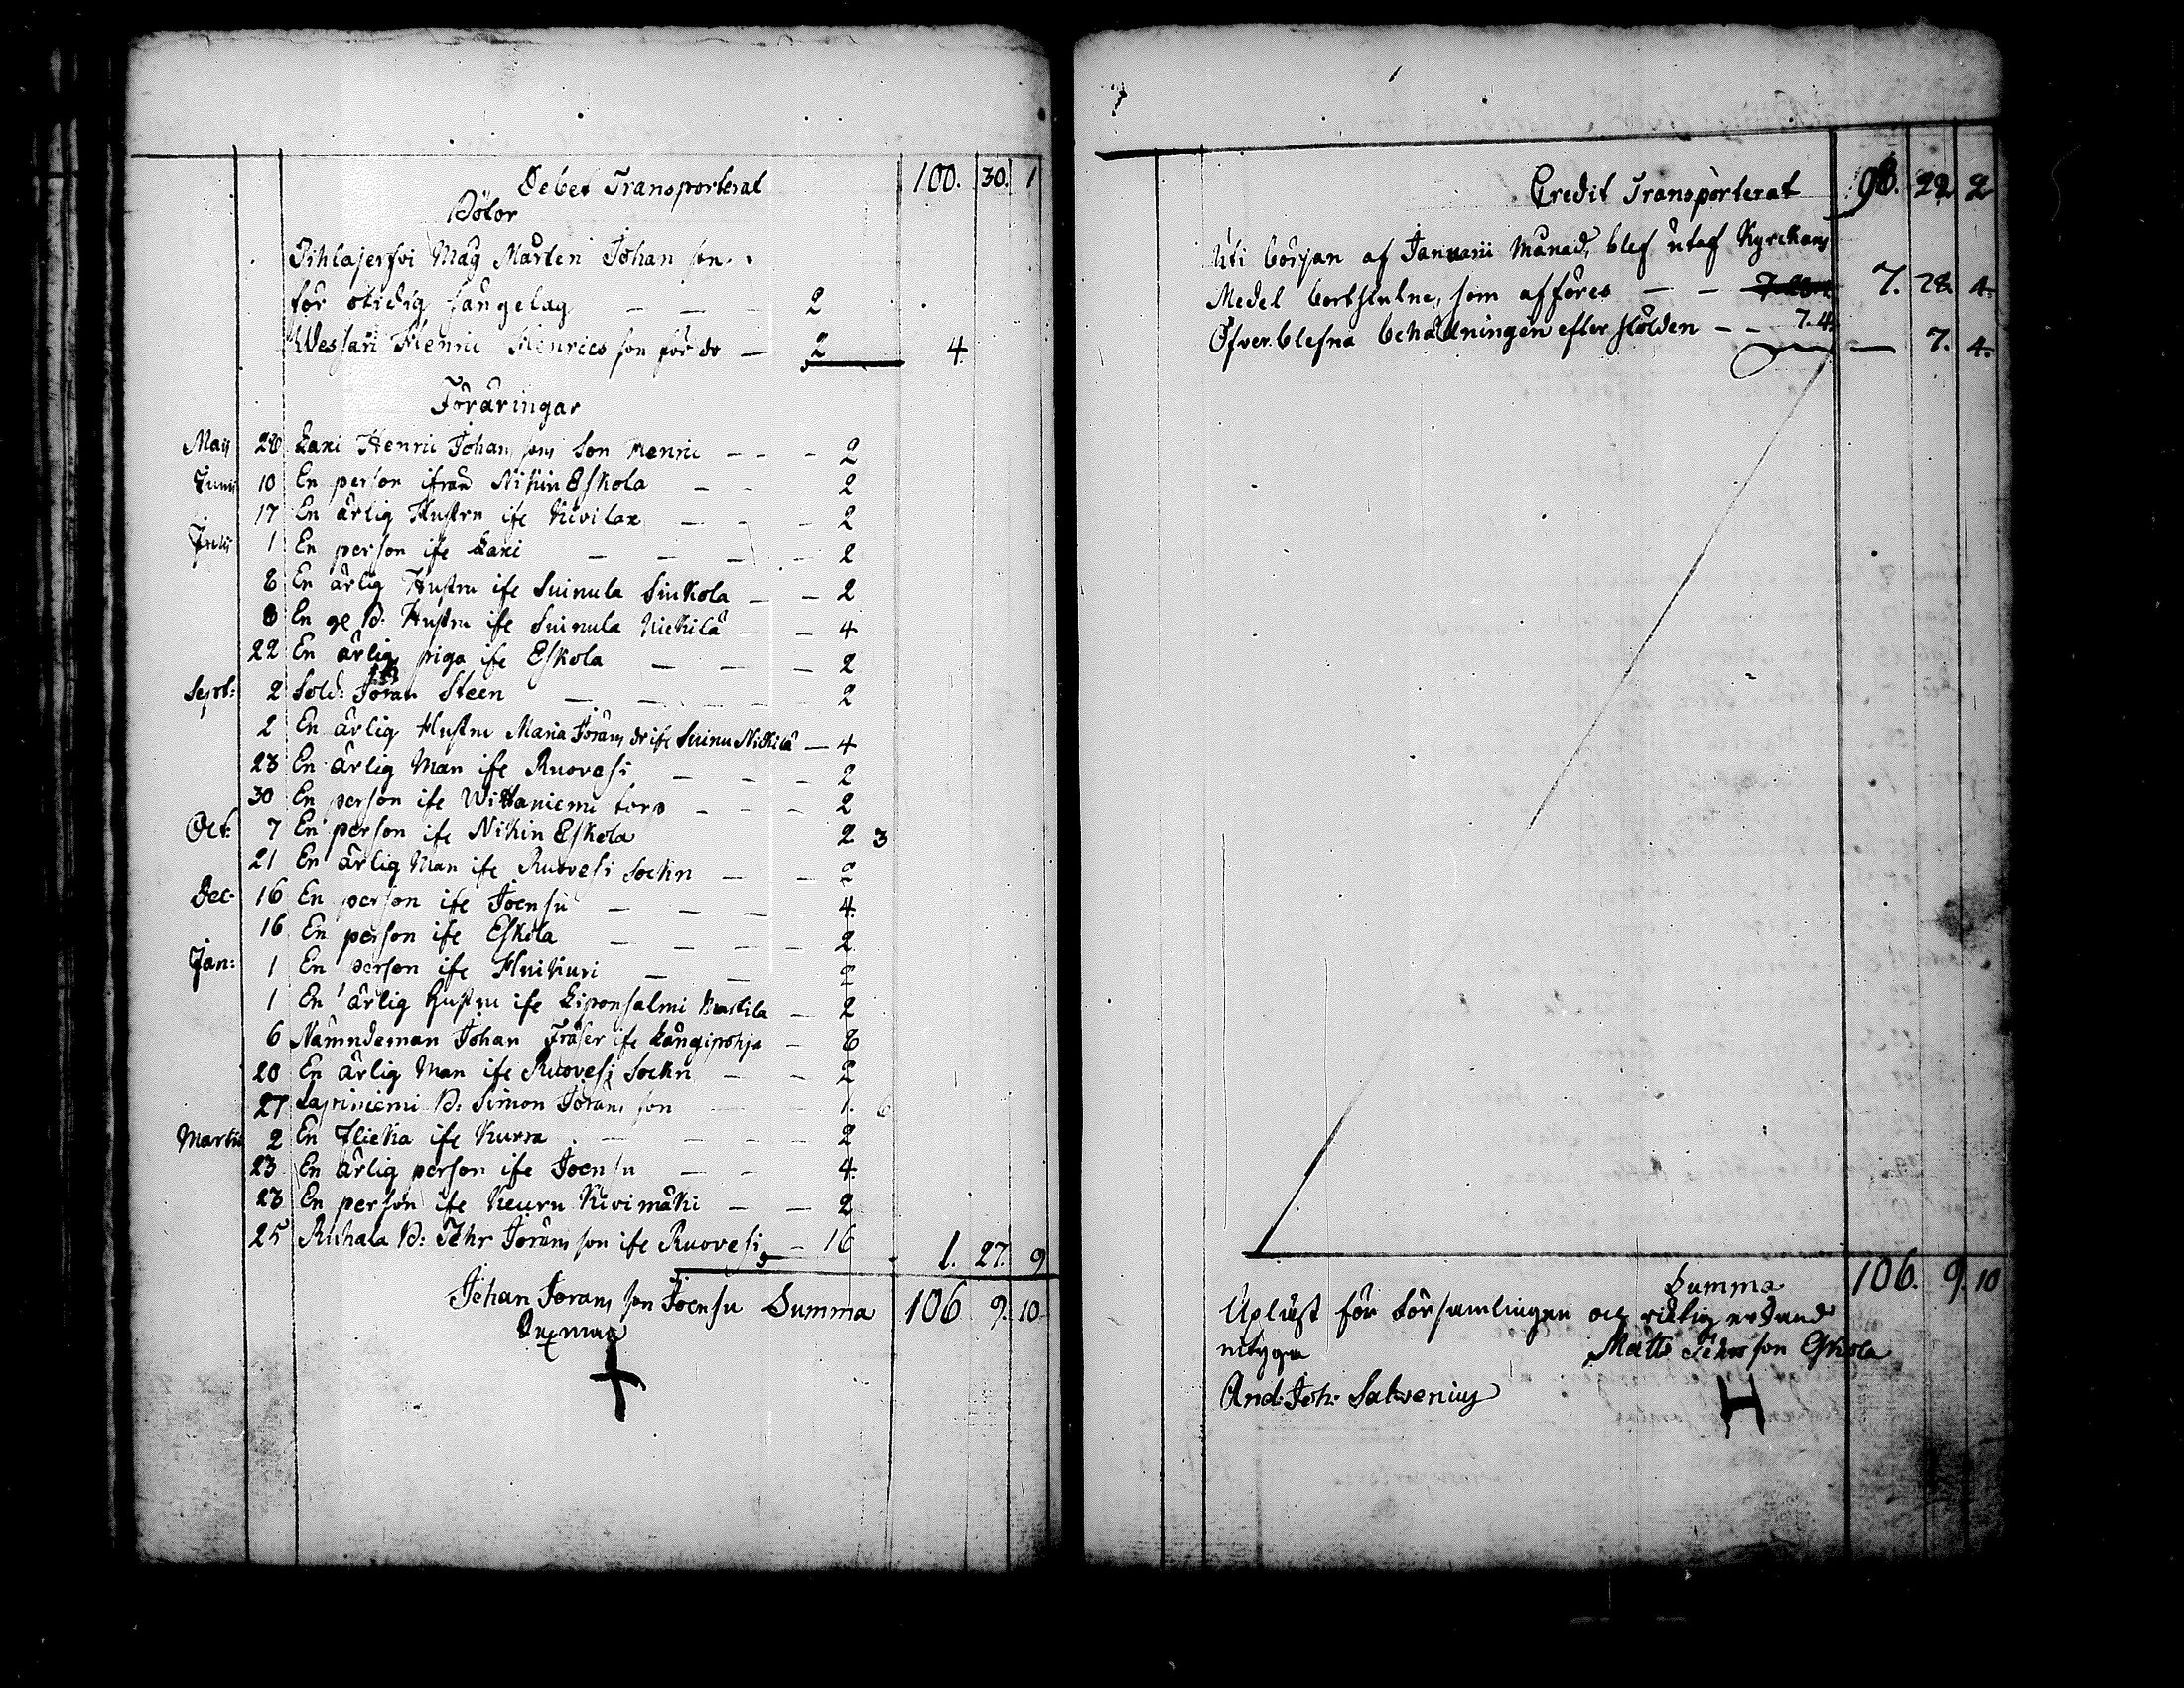 Debet Transporterat 100. 30. 1
Böter
Pihlajerfvi Mag Mårten Johan son
för otidig sängelag — — — 2
Wessari Henric Henrics son för do — 2 4.
Föräringar
Maij 28 Laxi Henric Johans sons Son Henric - - - 2
Junii 10 En person ifrån Nihin Eskola — - 2
17 En ärlig Hustru ifr Kivilax — - - 2
Julii 1 En person ifr Laxi — — — - 2
8 En ärlig Hustru ifr Suinula Sinkola — - 2
8 En ge B: Hustru ifr Suinula Nickilä — - 4
22 En ärlig piga ifr Eskola — — — 2
Sept: 2 Sold: Jöran Steen — — - - - 2
2 En ärlig Hustru Maria Jörans dr ifr Suinu Nickilä — 4
23 En ärlig Man ifr Ruovesi — - - 2
30 En person ifr Wittaniemi torp - - - 2
Oct: 7 En person ifr Nihin Eskola 2 3
21 En ärlig Man ifr Ruovesi Sockn — - 2
Dec- 16 En person ifr Joensu — — — - 4.
16 En person ifr Eskola — — — - 2
Jan: 1 En person ifr Huikuri — — 2
1 En ärlig Hustru ifr Liponsalmi Martila — 2
6 Nämndeman Johan Fräser ifr Långipohja — 8
20 En ärlig Man ifr Ruovesi Sockn — - 2
27 Lapiniemi B: Simon Jörans son — - 1. 6
Martii 2 En flicka ifr Kurra — - - - 2
23 En ärlig person ifr Joensu — - 4.
23 En person ifr Keuru Kivimäki — — 2
25 Ruhala B: Jöran son ifr Ruovesi - 16 1. 27. 9
Johan Jörans son Joensu Summa 106 9. 10
Sexman
Credit Transporterat 98. 22 2
Uti början af Januarii Månad, blef utaf Kyrckans
Medel bortstulne, som afföres — — 7. 28. 4.
Öfver blefna behållningen efter stölden - - 7. 4. — 7. 4.
Summa 106. 9. 10
Upläst för Församlingen och riktig ersand
witygar Matts son Eskola
And: Joh: Salvenius
H